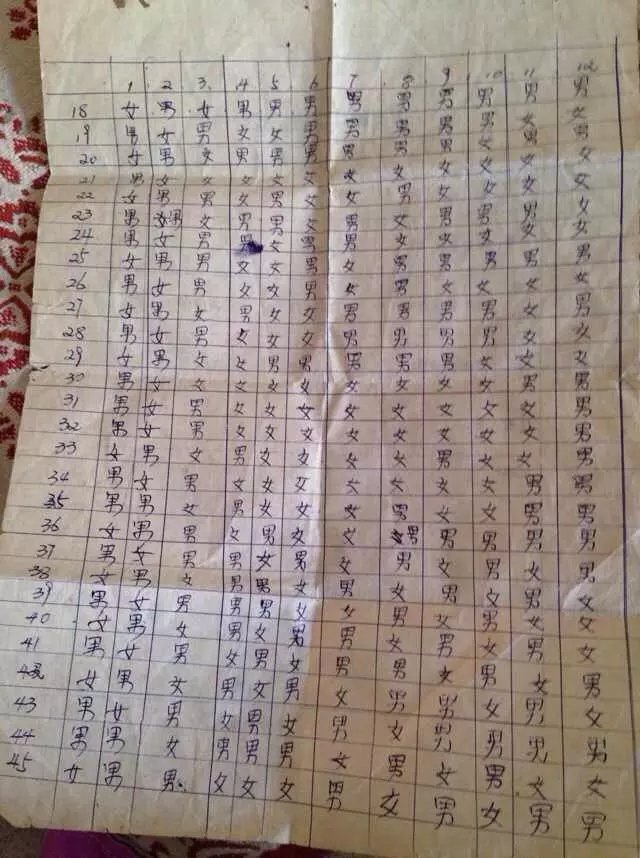 1 2 3 4 5 6 7 8 9 10 11 12
18 女 男 女 男 男 男 男 男 男 男 男 男
19 男 女 男 女 女 男 男 男 男 男 女 女
20 女 男 女 男 男 男 男 男 男 女 男 男
21 男 女 女 女 女 女 女 女 女 女 女 女
22 女 男 女 女 男 女 女 男 女 女 女 女
23 男 女男 女 男 男 女 男 女 男 男 男 女
24 男 女 男 女 男 男 女 女 女 女 女
25 女 男 男 女 女 男 女 男 男 男 男 男
26 男 女 男 女 女 男 女 男 女 女 女 女
27 女 男 女 男 女 女 男 男 男 男 女 男
28 男 女 男 女 女 女 男 男 男 男 女 女
29 女 男 女 女 男 男 男 男 男 女 女 女
30 男 女 女 女 女 女 女 女 女 女 男 男
31 男 女 男 女 女 女 女 女 女 女 女 男
32 男 女 男 女 女 女 女 女 女 女 女 男
33 女 男 女 男 女 女 女 女 男 女 女 男
34 男 女 男 女 女 女 女 女 女 女 男 男
35 男 男 女 男 女 女 女 男 女 女 男 男
36 女 男 男 女 男 女 女 女男 男 男 男 男
37 男 女 男 男 女 男 女 男 女 男 女 男
38 女 男 女 男 男 女 男 女 男 女 男 女
39 男 女 男 男 男 女 女 男 女 男 女 女
40 女 男 女 男 女 男 男 女 男 女 男 女
41 男 女 男 女 男 女 男 男 女 男 女 男
42 女 男 女 男 女 男 女 男 男 女 男 女
43 男 女 男 女 男 女 男 女 男 男 男 男
44 男 男 女 男 男 男 女 男 女 男 女 女
45 女 男 男 女 女 女 男 女 男 女 男 男